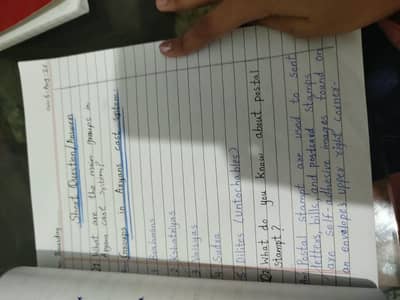 Thursday
Short Question/Answers
Q1 What are the main groups in
Aryans cast system?
Groups in Aryans cast system:
1. Brahmans
2. Kshatriyas
3. Vaisyas
4. Sudra
5. Dilites (Untochables)
Q2 What do you know about postal
stampt?
Ans Postal stampt are used to sent
letters, bills, and postcard stamps
are self-adhesive images found on
an envelopes upper right corner.